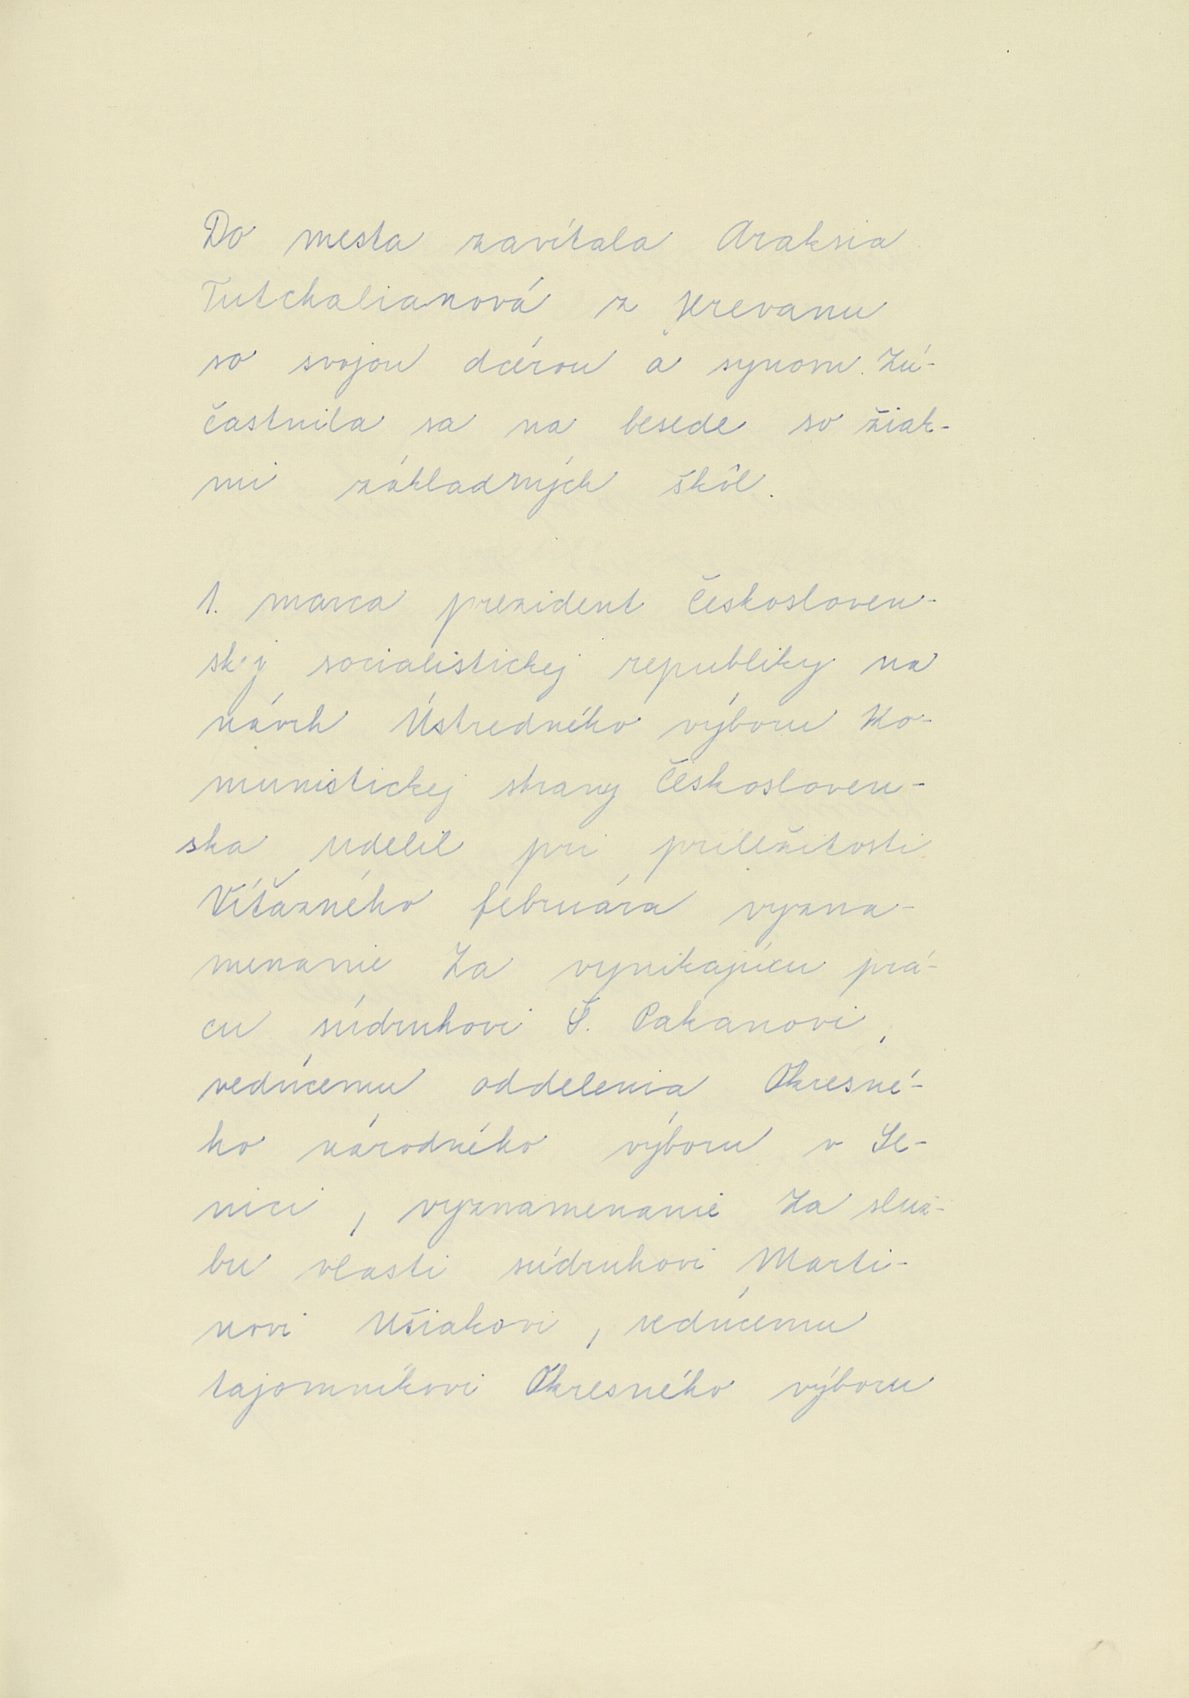 Do mesta zavítala Araksia
Tutchalianová z Jerevanu
so svojou dcérou a synom. Zú-
častnila sa na besede so žiak-
mi základných škôl.
1. marca prezident Českosloven-
skej socialistickej republiky na
návrh Ústredného výboru Ko-
munistickej strany Českosloven-
ska udelil pri príležitosti
Víťazného februára vyzna-
menanie Za vynikajúcu prá-
cu súdruhovi Š. Pakanovi,
vedúcemu oddelenia Okresné-
ho národného výboru v Se-
nici, vyznamenanie Za služ-
bu vlasti súdruhovi Marti-
novi Ušiakovi, vedúcemu
tajomníkovi Okresného výboru